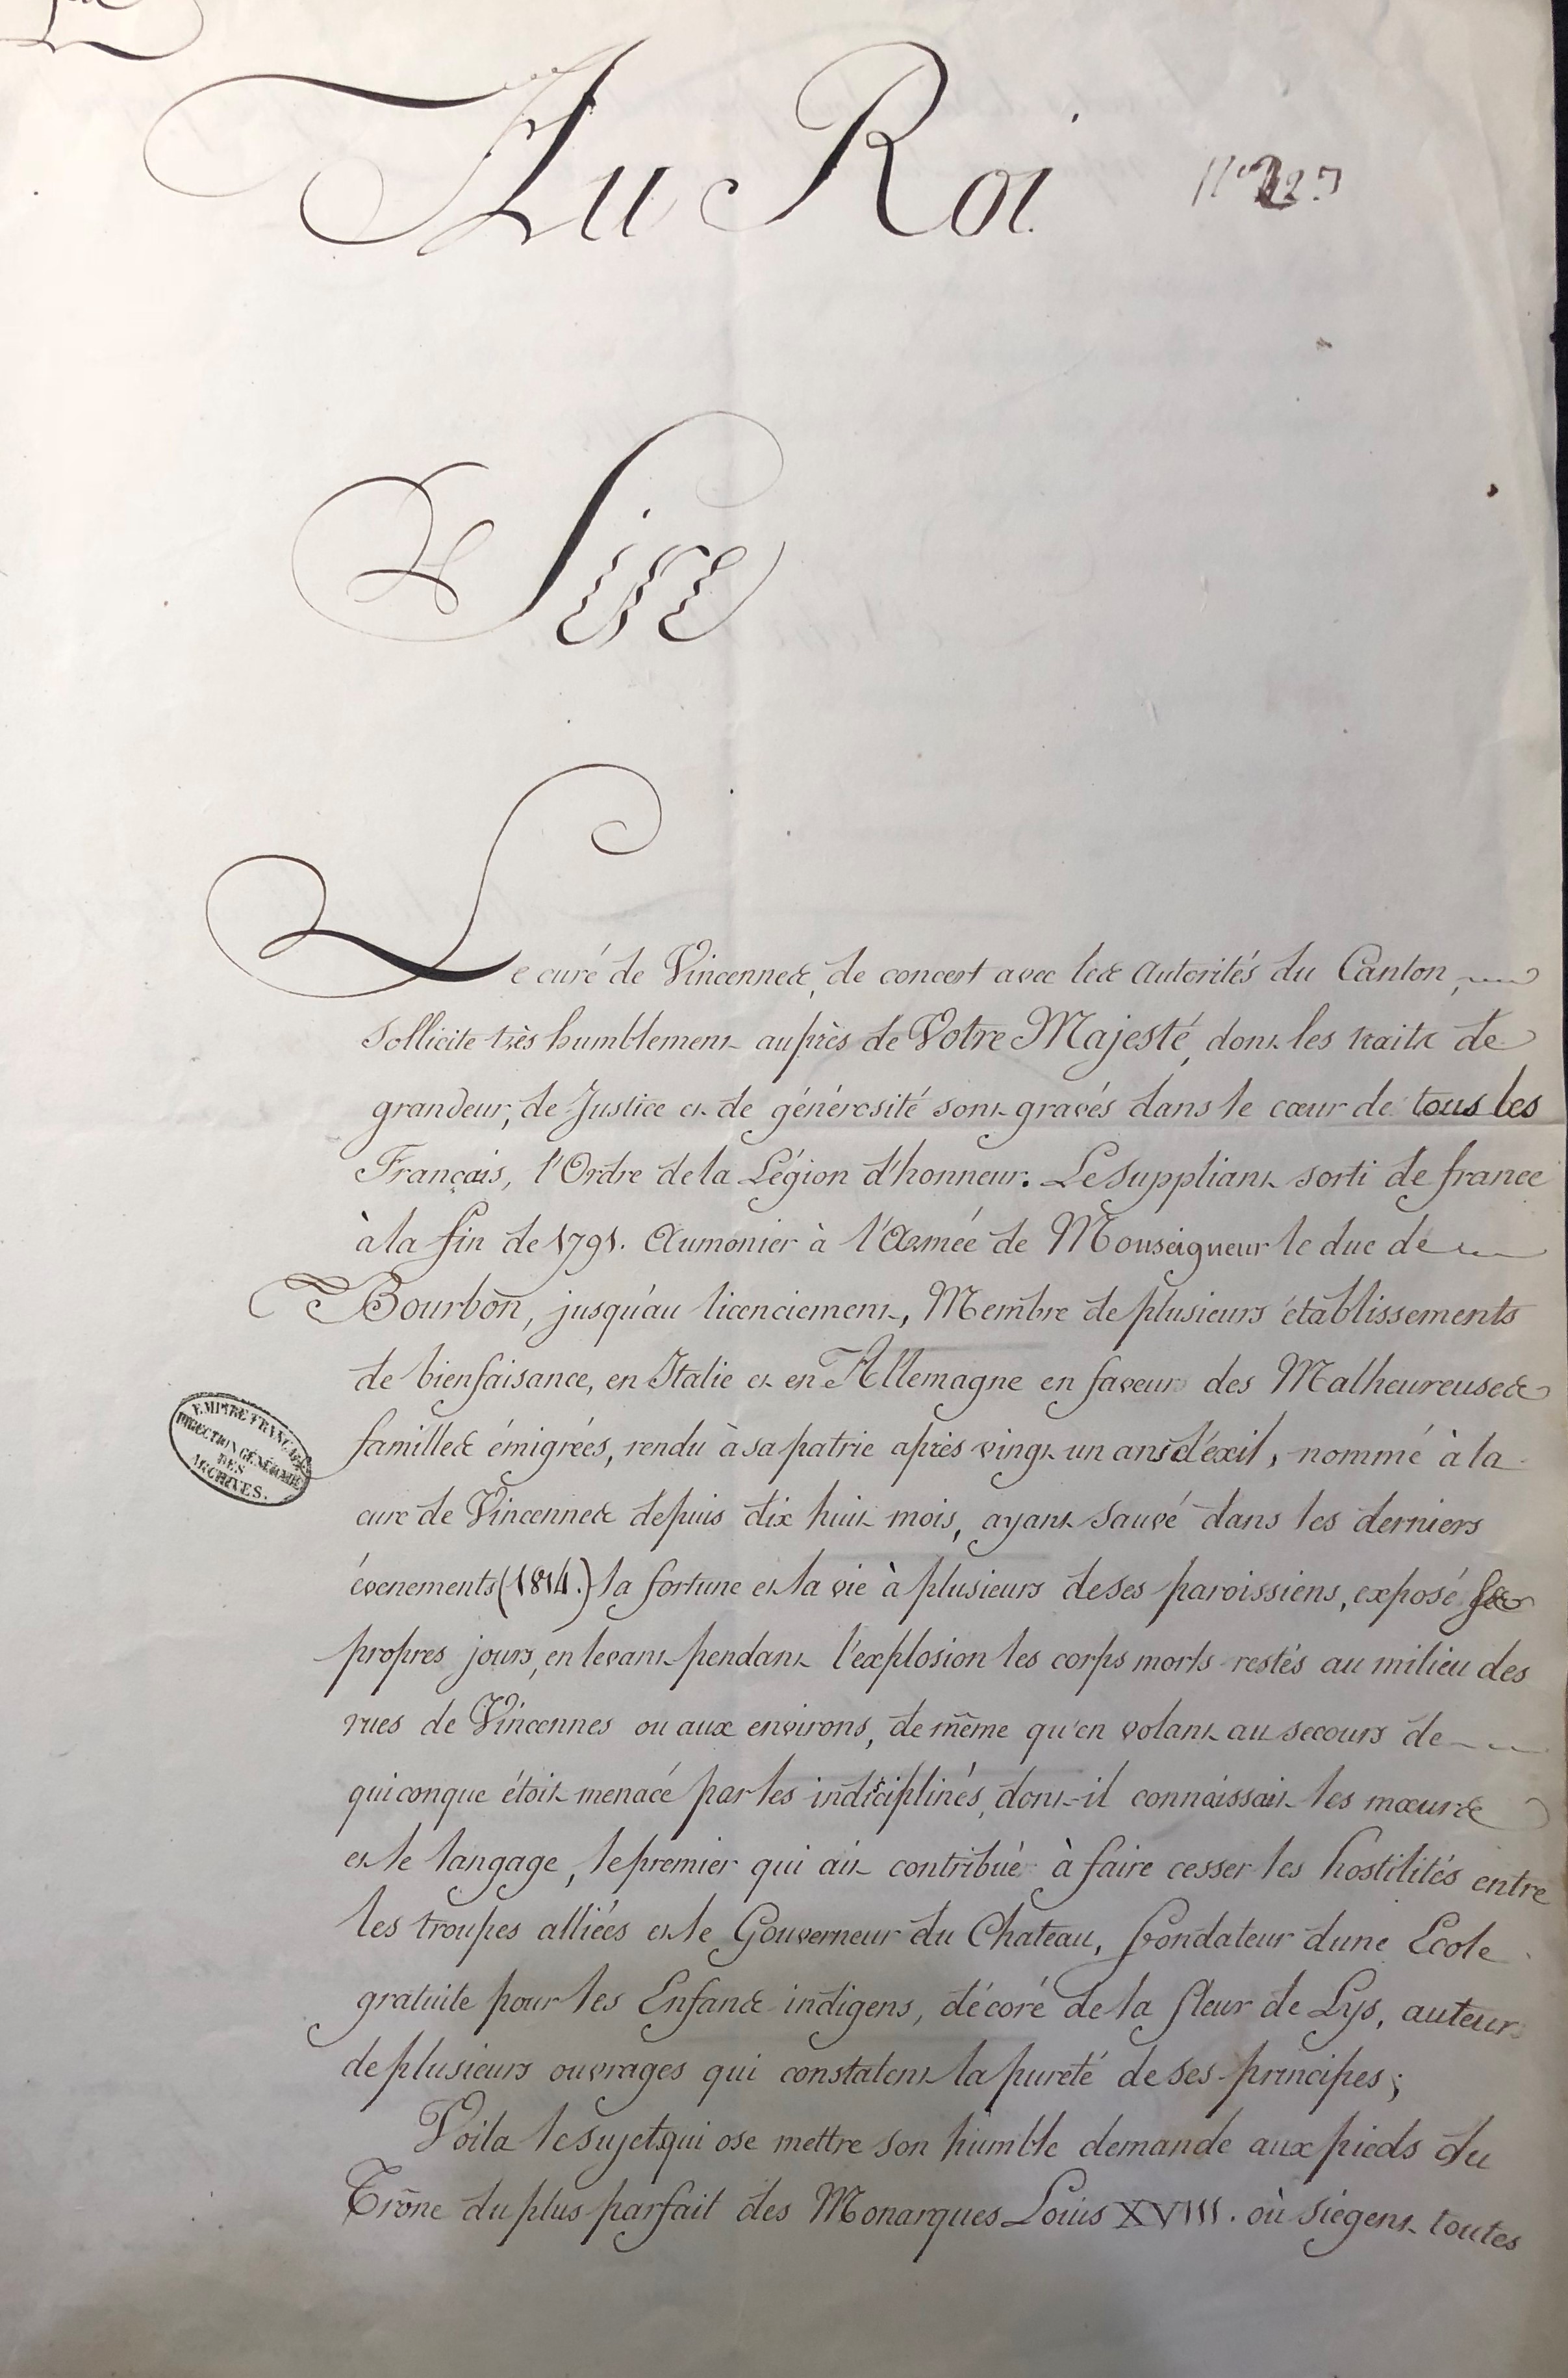 Au Roi
Sire
Le curé de Vincennes, de concert avec les Autorités du Canton,
sollicite très humblement auprès de Votre Majesté, dont les traits de
grandeur, de Justice et de générosité sont gravés dans le cœur de tous les
Français, l'Ordre de la Légion d'honneur. Le Suppliant sorti de france
à la fin de 1791. Aumonier à l'Armée de Monseigneur le duc de
Bourbon, jusqu'au licenciement, Membre de plusieurs établissements
de bienfaisance, en Italie et en Allemagne en faveur des Malheureuses
familles émigrées, rendu à sa patrie après vingt un ans d'éxil, nommé à la
cure de Vincennes depuis dix huit mois, ayant sauvé dans les derniers
évenements (1814.) la fortune et la vie à plusieurs de ses paroissiens, exposé ses
propres jours, en levant pendant l'explosion les corps morts restés au milieu des
rues de Vincennes ou aux environs, de même qu'en volant au secours de
quiconque étoit menacé par les indisciplinés, dont il connaissait les mœurs
et le langage, le premier qui ait contribué à faire cesser les hostilités entre
les troupes alliées et le Gouverneur du Chateau, fondateur dune Ecole
gratuite pour les Enfans indigens, décoré de la fleur de Lys, auteur
de plusieurs ouvrages qui constatent la pureté de ses principes;
Voila le sujet qui ose mettre son humble demande aux pieds du
Trône du plus parfait des Monarques Louis XVIII. où siégent toutes
EMPIRE FRANÇAIS
DIRECTION GÉNÉRALE
DES
ARCHIVES.